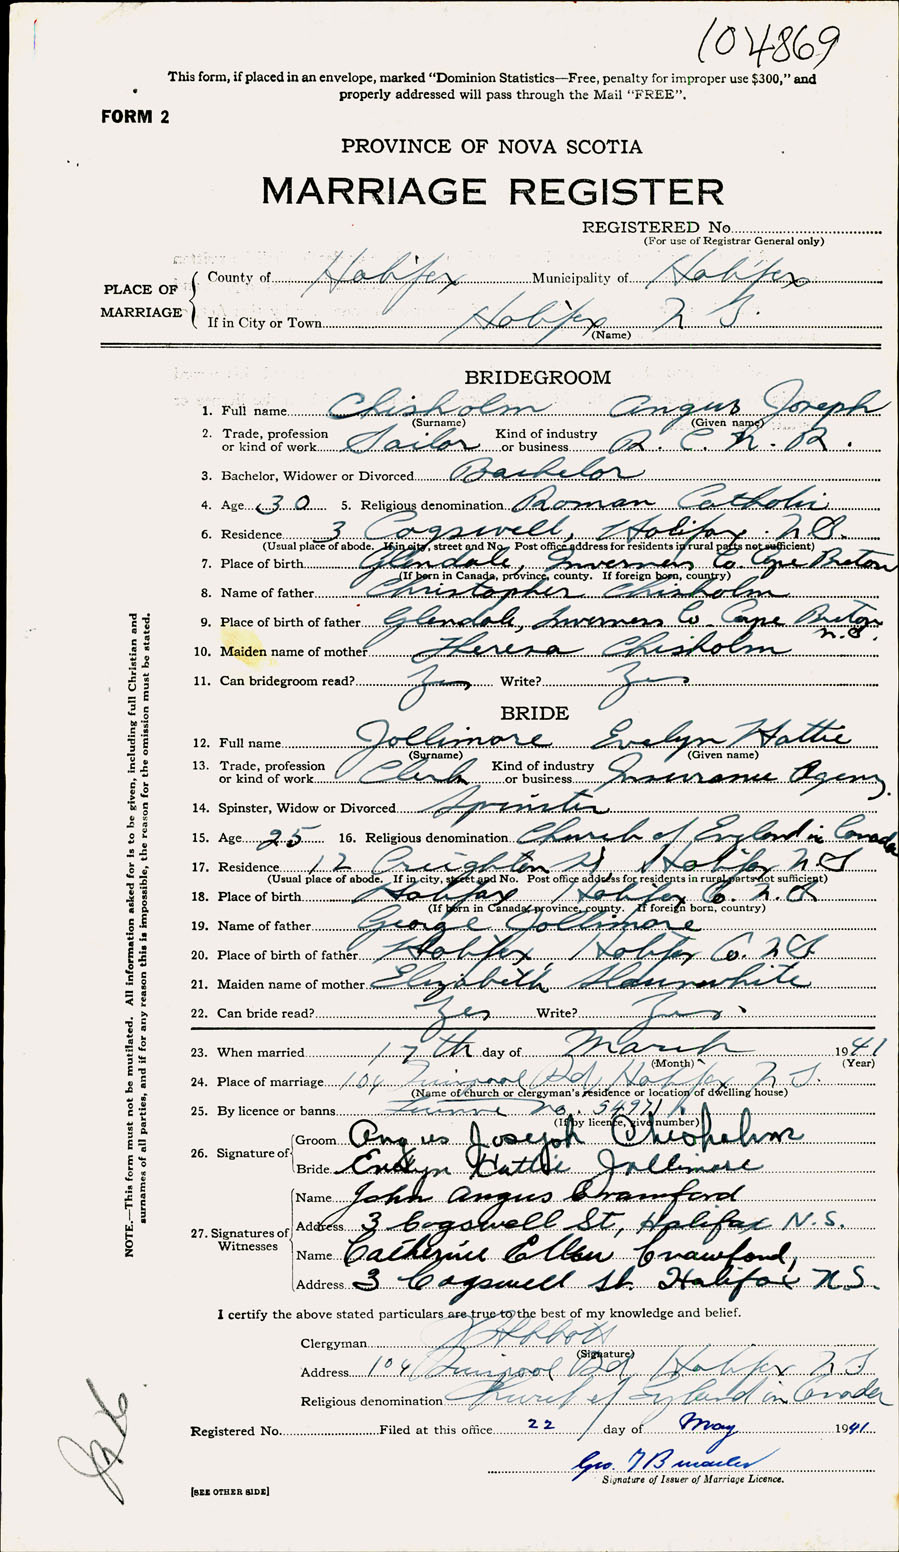 104869
This form, if placed in an envelope, marked “Dominion Statistics—Free, penalty for improper use $300,” and
properly addressed will pass through the Mail “FREE”.
FORM 2
PROVINCE OF NOVA SCOTIA
MARRIAGE REGISTER
REGISTERED No.
(For use of Registrar General only)
PLACE OF MARRIAGE
County of Halifax Municipality of Halifax
If in City or Town Halifax N S.
(Name)
BRIDEGROOM
1. Full name Chisholm Angus Joseph
(Surname) (Given name)
2. Trade, profession or kind of work Sailor Kind of industry or business R. C. N. R.
3. Bachelor, Widower or Divorced Bachelor
4. Age 30 5. Religious denomination Roman Catholic
6. Residence 3 Cogswell, Halifax N.S.
(Usual place of abode. If in city, street and No. Post office address for residents in rural parts not sufficient)
7. Place of birth Glendale, Inverness Co. Cape Breton
(If born in Canada, province, county. If foreign born, country)
8. Name of father Christopher Chisholm
9. Place of birth of father Glendale, Inverness Co. Cape Breton N.S.
10. Maiden name of mother Theresa Chisholm
11. Can bridegroom read? Yes Write? Yes
BRIDE
12. Full name Jollimore Evelyn Hattie
(Surname) (Given name)
13. Trade, profession or kind of work Clerk Kind of industry or business Insurance Agency.
14. Spinster, Widow or Divorced Spinster
15. Age 25 16. Religious denomination Church of England in Canada
17. Residence 12 Creighton St Halifax N S
(Usual place of abode. If in city, street and No. Post office address for residents in rural parts not sufficient)
18. Place of birth Halifax Halifax Co. N.S
(If born in Canada, province, county. If foreign born, country)
19. Name of father George Jollimore
20. Place of birth of father Halifax, Halifax Co. N S.
21. Maiden name of mother Elizabeth Slaunwhite
22. Can bride read? Yes Write? Yes
23. When married 17th day of March 1941
(Month) (Year)
24. Place of marriage 104 Quinpool Rd, Halifax N S.
(Name of church or clergyman's residence or location of dwelling house)
25. By licence or banns No. 54971
(If by licence, give number)
26. Signature of
Groom Angus Joseph Chisholm
Bride Evelyn Hattie Jollimore
27. Signatures of Witnesses
Name John Angus Crawford
Address 3 Cogswell St, Halifax N.S.
Name Catherine Ellen Crawford,
Address 3 Cogswell St. Halifax N.S.
I certify the above stated particulars are true to the best of my knowledge and belief.
Clergyman
(Signature)
Address 104 Quinpool Rd, Halifax N S
Religious denomination Church of England in Canada
Registered No. Filed at this office 22 day of May 1941
Geo.
Signature of Issuer of Marriage Licence.
[SEE OTHER SIDE]
NOTE.—This form must not be mutilated. All information asked for is to be given, including full Christian and
surnames of all parties, and if for any reason this is impossible, the reason for the omission must be stated.